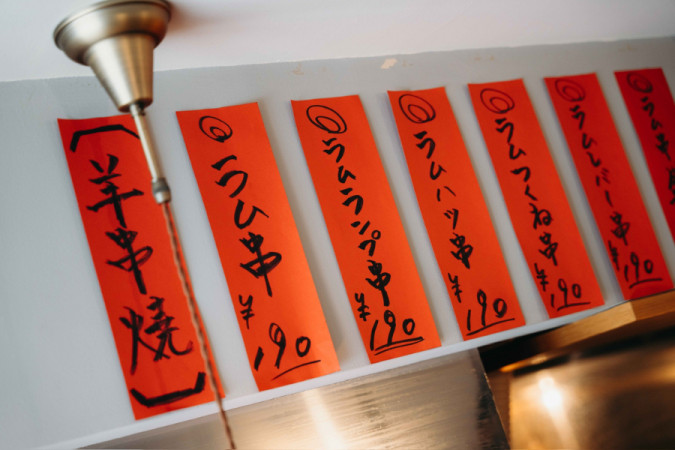 〔羊串焼〕
◎ラム串¥190
◎ラムランプ串¥190
◎ラムハツ串¥190
◎ラムつくね串¥190
◎ラムレバー串¥190
◎ラム